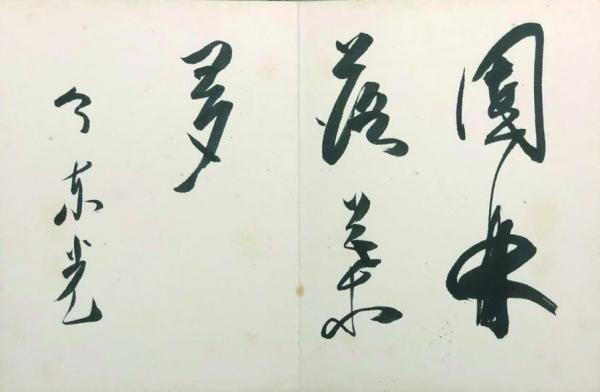 園林
落葉
多
今東光